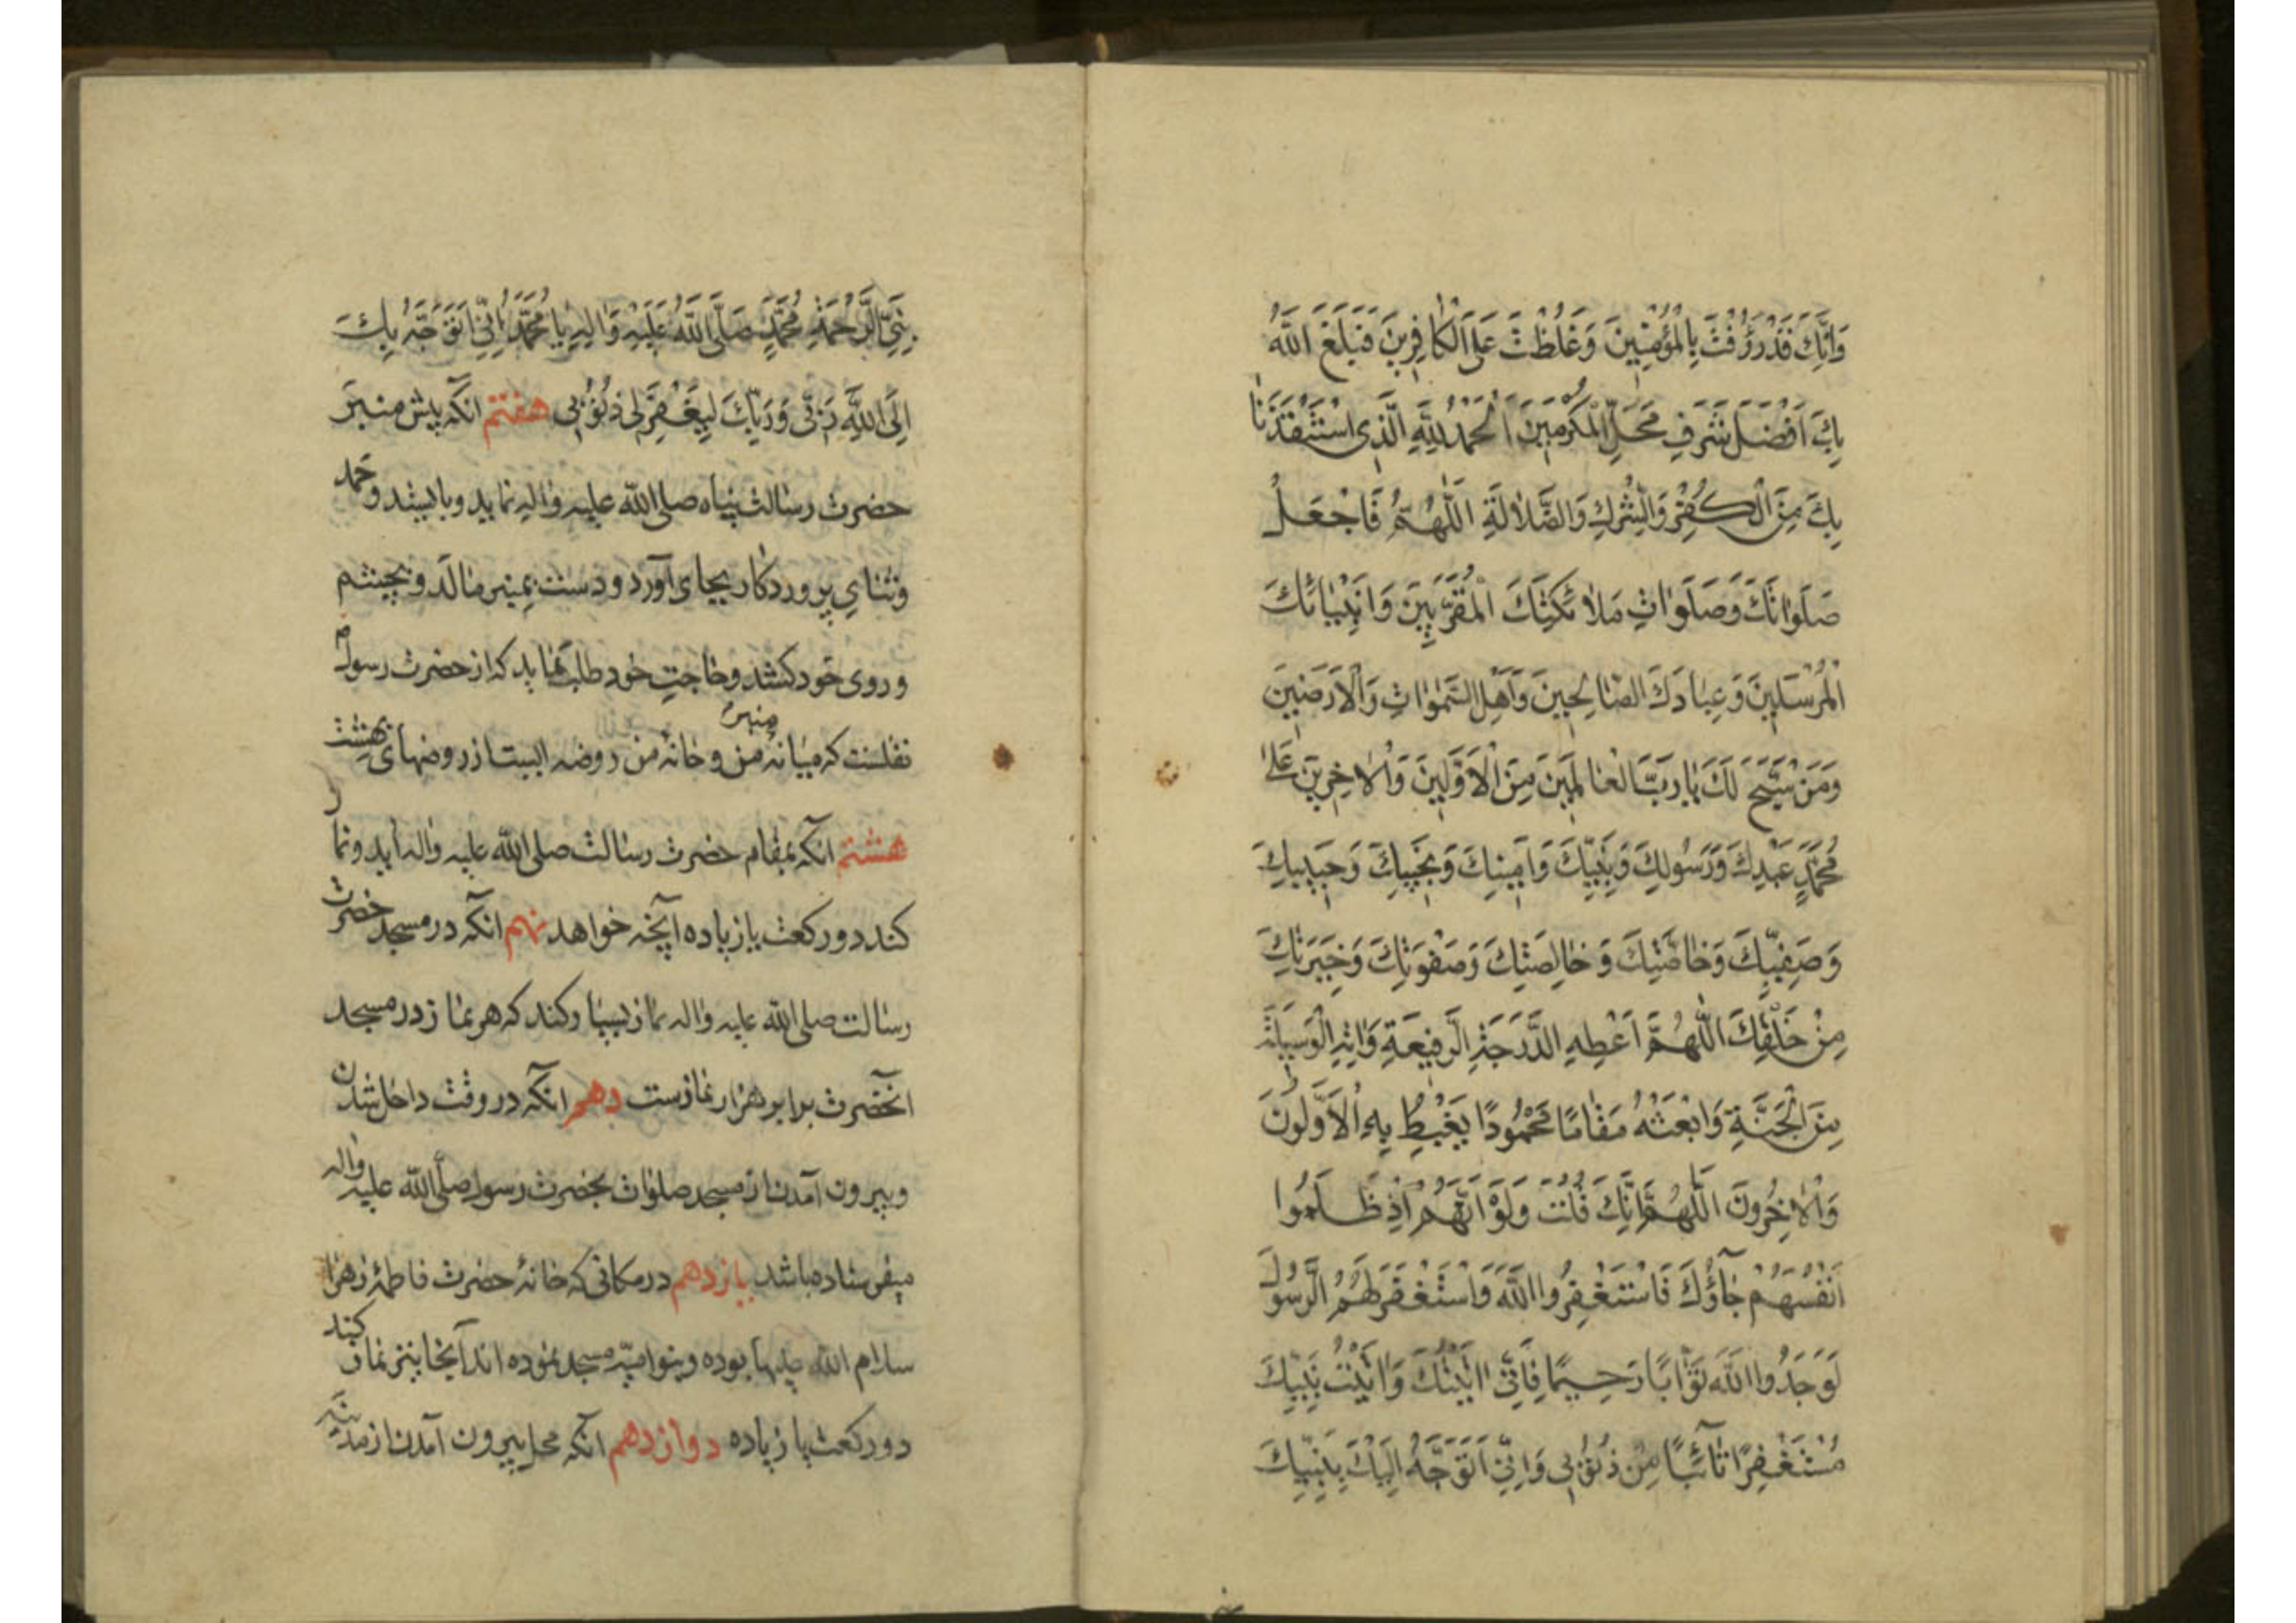 وَاَنَّكَ قَدْ رَؤُفْتَ بِالْمُؤْمِنِينَ وَغَلُظْتَ عَلَى الْكَافِرِينَ فَبَلَغَ اللَّهُ
بِكَ اَفْضَلَ شَرَفِ مَحَلِّ الْمُكَرَّمِينَ اَلْحَمْدُ لِلَّهِ الَّذِى اسْتَنْقَذَنَا
بِكَ مِنَ الْكُفْرِ وَالشِّرْكِ وَالضَّلالَةِ اَللّٰهُمَّ فَاجْعَلْ
صَلَوَاتَكَ وَصَلَوَاتِ مَلائِكَتِكَ الْمُقَرَّبِينَ وَاَنْبِيَائِكَ
الْمُرْسَلِينَ وَعِبَادِكَ الصَّالِحِينَ وَاَهْلِ السَّمٰوَاتِ وَالْاَرَضِينَ
وَمَنْ سَبَّحَ لَكَ يَا رَبَّ الْعَالَمِينَ مِنَ الْاَوَّلِينَ وَالْاٰخِرِينَ عَلىٰ
مُحَمَّدٍ عَبْدِكَ وَرَسُولِكَ وَنَبِيِّكَ وَاَمِينِكَ وَنَجِيبِكَ وَحَبِيبِكَ
وَصَفِيِّكَ وَخَاصَّتِكَ وَخَالِصَتِكَ وَصَفْوَتِكَ وَخِيَرَتِكَ
مِنْ خَلْقِكَ اَللّٰهُمَّ اَعْطِهِ الدَّرَجَةَ الرَّفِيعَةَ وَاٰتِهِ الْوَسِيلَةَ
مِنَ الْجَنَّةِ وَابْعَثْهُ مَقَامًا مَحْمُودًا يَغْبِطُ بِهِ الْاَوَّلُونَ
وَالْاٰخِرُونَ اَللّٰهُمَّ اِنَّكَ قُلْتَ وَلَوْ اَنَّهُمْ اِذْ ظَلَمُوا
اَنْفُسَهُمْ جَآؤُكَ فَاسْتَغْفَرُوا اللَّهَ وَاسْتَغْفَرَ لَهُمُ الرَّسُولُ
لَوَجَدُوا اللَّهَ تَوَّابًا رَحِيمًا فَاِنِّى اَتَيْتُكَ وَاَتَيْتُ نَبِيَّكَ
مُسْتَغْفِرًا تَآئِبًا مِنْ ذُنُوبِى وَاِنِّى اَتَوَجَّهُ اِلَيْكَ بِنَبِيِّكَ
نَبِىِّ الرَّحْمَةِ مُحَمَّدٍ صَلَّى اللَّهُ عَلَيْهِ وَاٰلِهِ يَا مُحَمَّدُ اِنِّى اَتَوَجَّهُ بِكَ
اِلَى اللَّهِ رَبِّى وَرَبِّكَ لِيَغْفِرَ لِى ذُنُوبِى هفتم آنکه پیش منبر
حضرت رسالت پناه صلی الله علیه واله نماید وبایستد وحمد
وثنای پروردکار بجای آورد ودست بمنبر مالد وبچشم
وروی خود کشد وحاجت خود طلب نماید که از حضرت رسول ص
نقلست که میانهٔ منبر من وخانهٔ من روضه ایست از روضهای بهشت
هشتم آنکه بمقام حضرت رسالت صلی الله علیه واله آید ونماز
کند دو رکعت یا زیاده آنچه خواهد نهم آنکه در مسجد حضرت
رسالت صلی الله علیه واله نماز بسیار کند که هر نماز در مسجد
آنحضرت برابر هزار نمازست دهم آنکه در وقت داخل شدن
وبیرون آمدن از مسجد صلوات بحضرت رسول صلی الله علیه واله
میفرستاده باشد یازدهم در مکانی که خانهٔ حضرت فاطمهٔ زهرا
سلام الله علیها بوده وبنوامیّه مسجد نموده اند آنجا نیز نماز کند
دو رکعت یا زیاده دوازدهم آنکه محل بیرون آمدن از مدینه